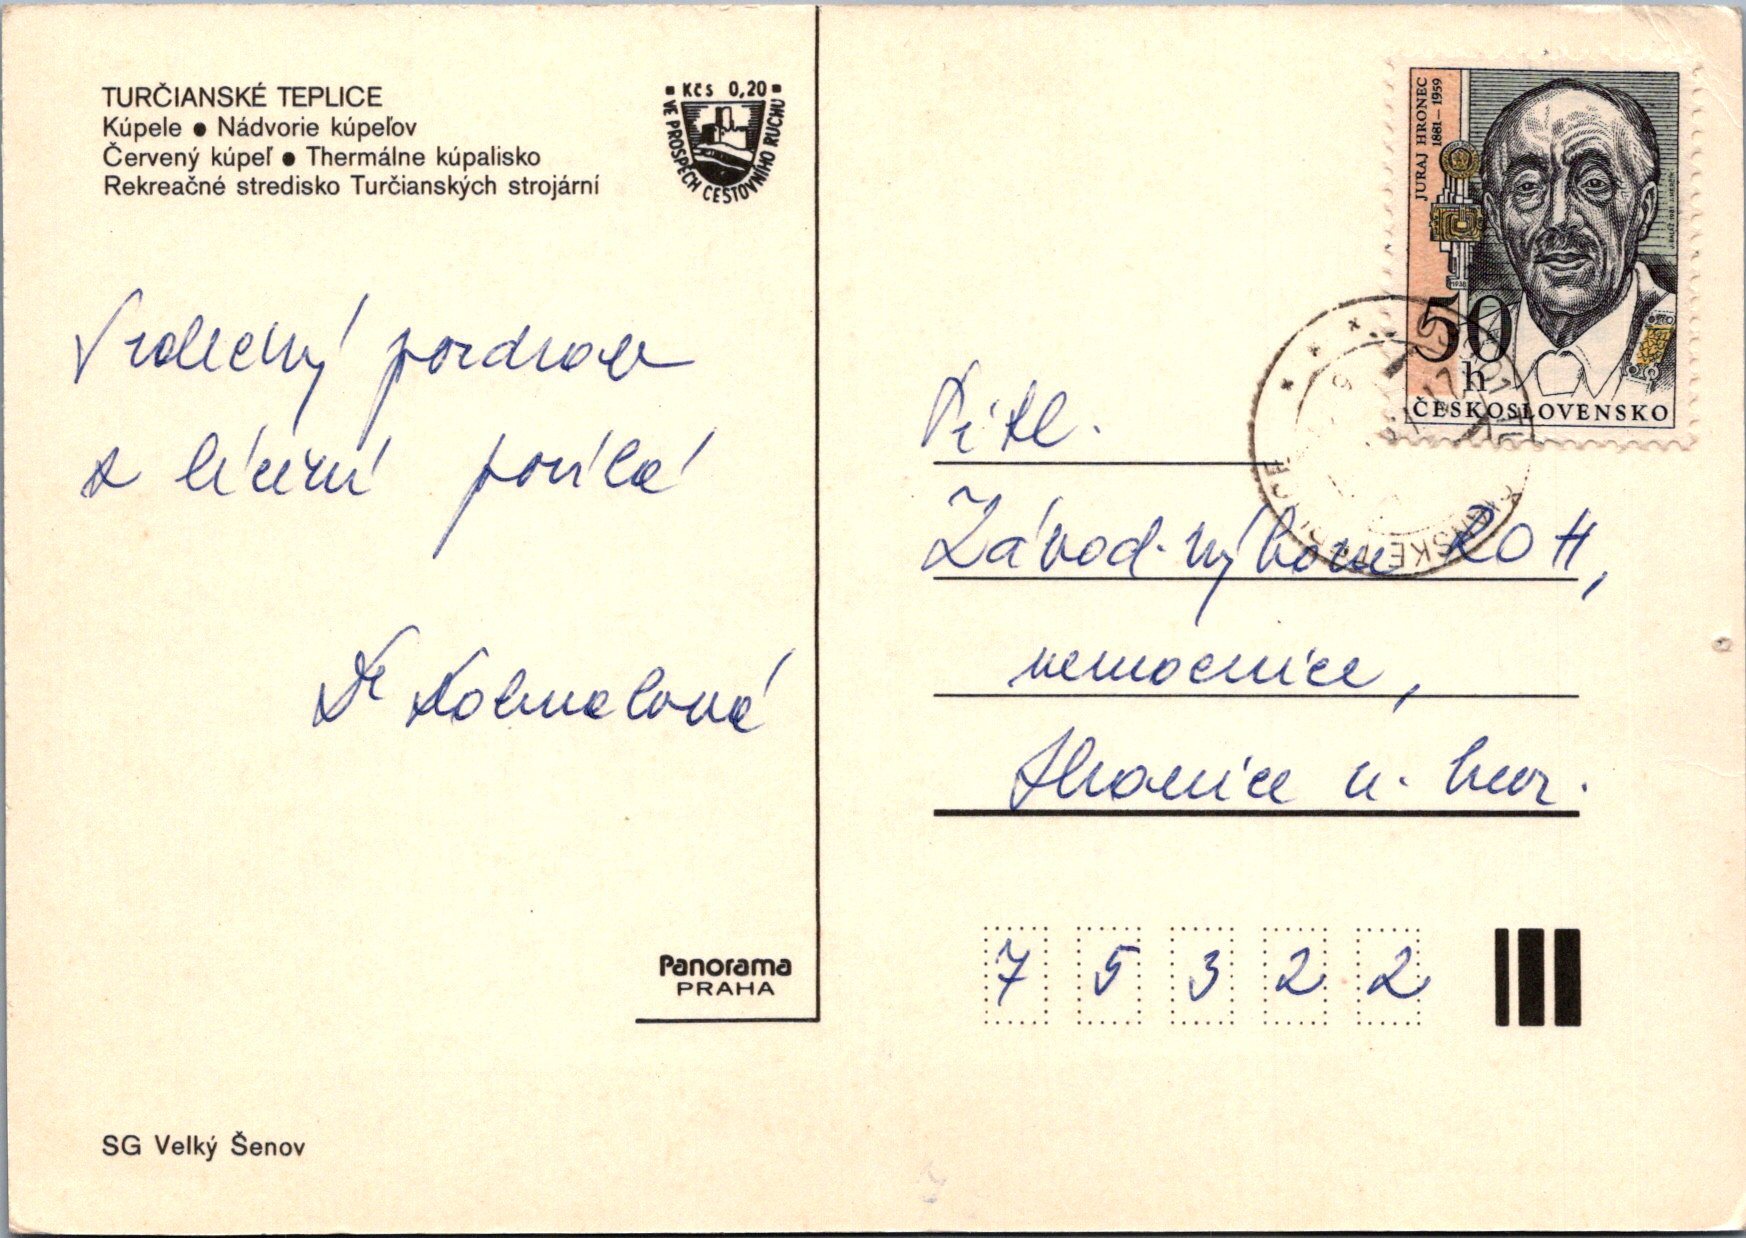 TURČIANSKÉ TEPLICE
Kúpele ● Nádvorie kúpeľov
Červený kúpeľ ● Thermálne kúpalisko
Rekreačné stredisko Turčianských strojární
Kčs 0,20
VE PROSPĚCH CESTOVNÍHO RUCHU
Srdečný pozdrav
z léčení posílá
Dr
JURAJ HRONEC
1881–1959
50
h
ČESKOSLOVENSKO
Titl.
Závod. výboru ROH,
nemocnice,
Hranice n.
7 5 3 2 2
Panorama
PRAHA
SG Velký Šenov